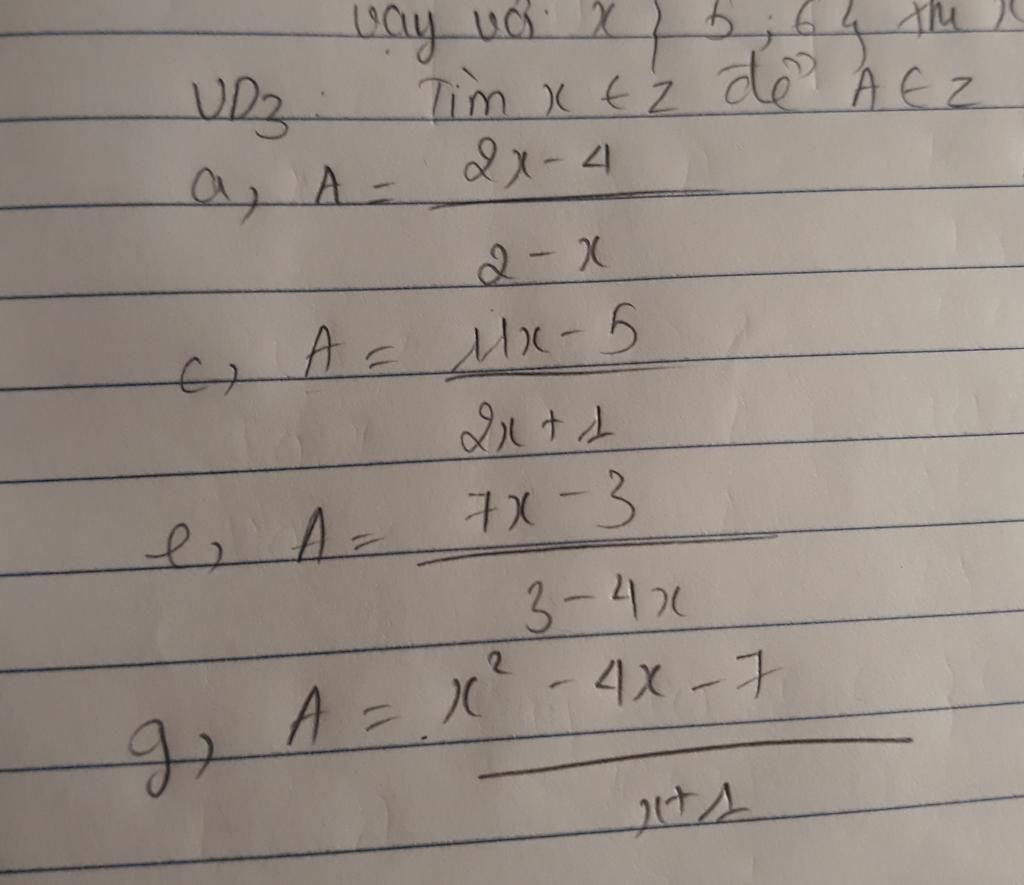 vậy với x } 5 ; 6 } thì x
VD3: Tìm x ∈ Z để A ∈ Z
a, A = 2x - 4 / 2 - x
c, A = 11x - 5 / 2x + 1
e, A = 7x - 3 / 3 - 4x
g, A = x² - 4x - 7 / x + 1